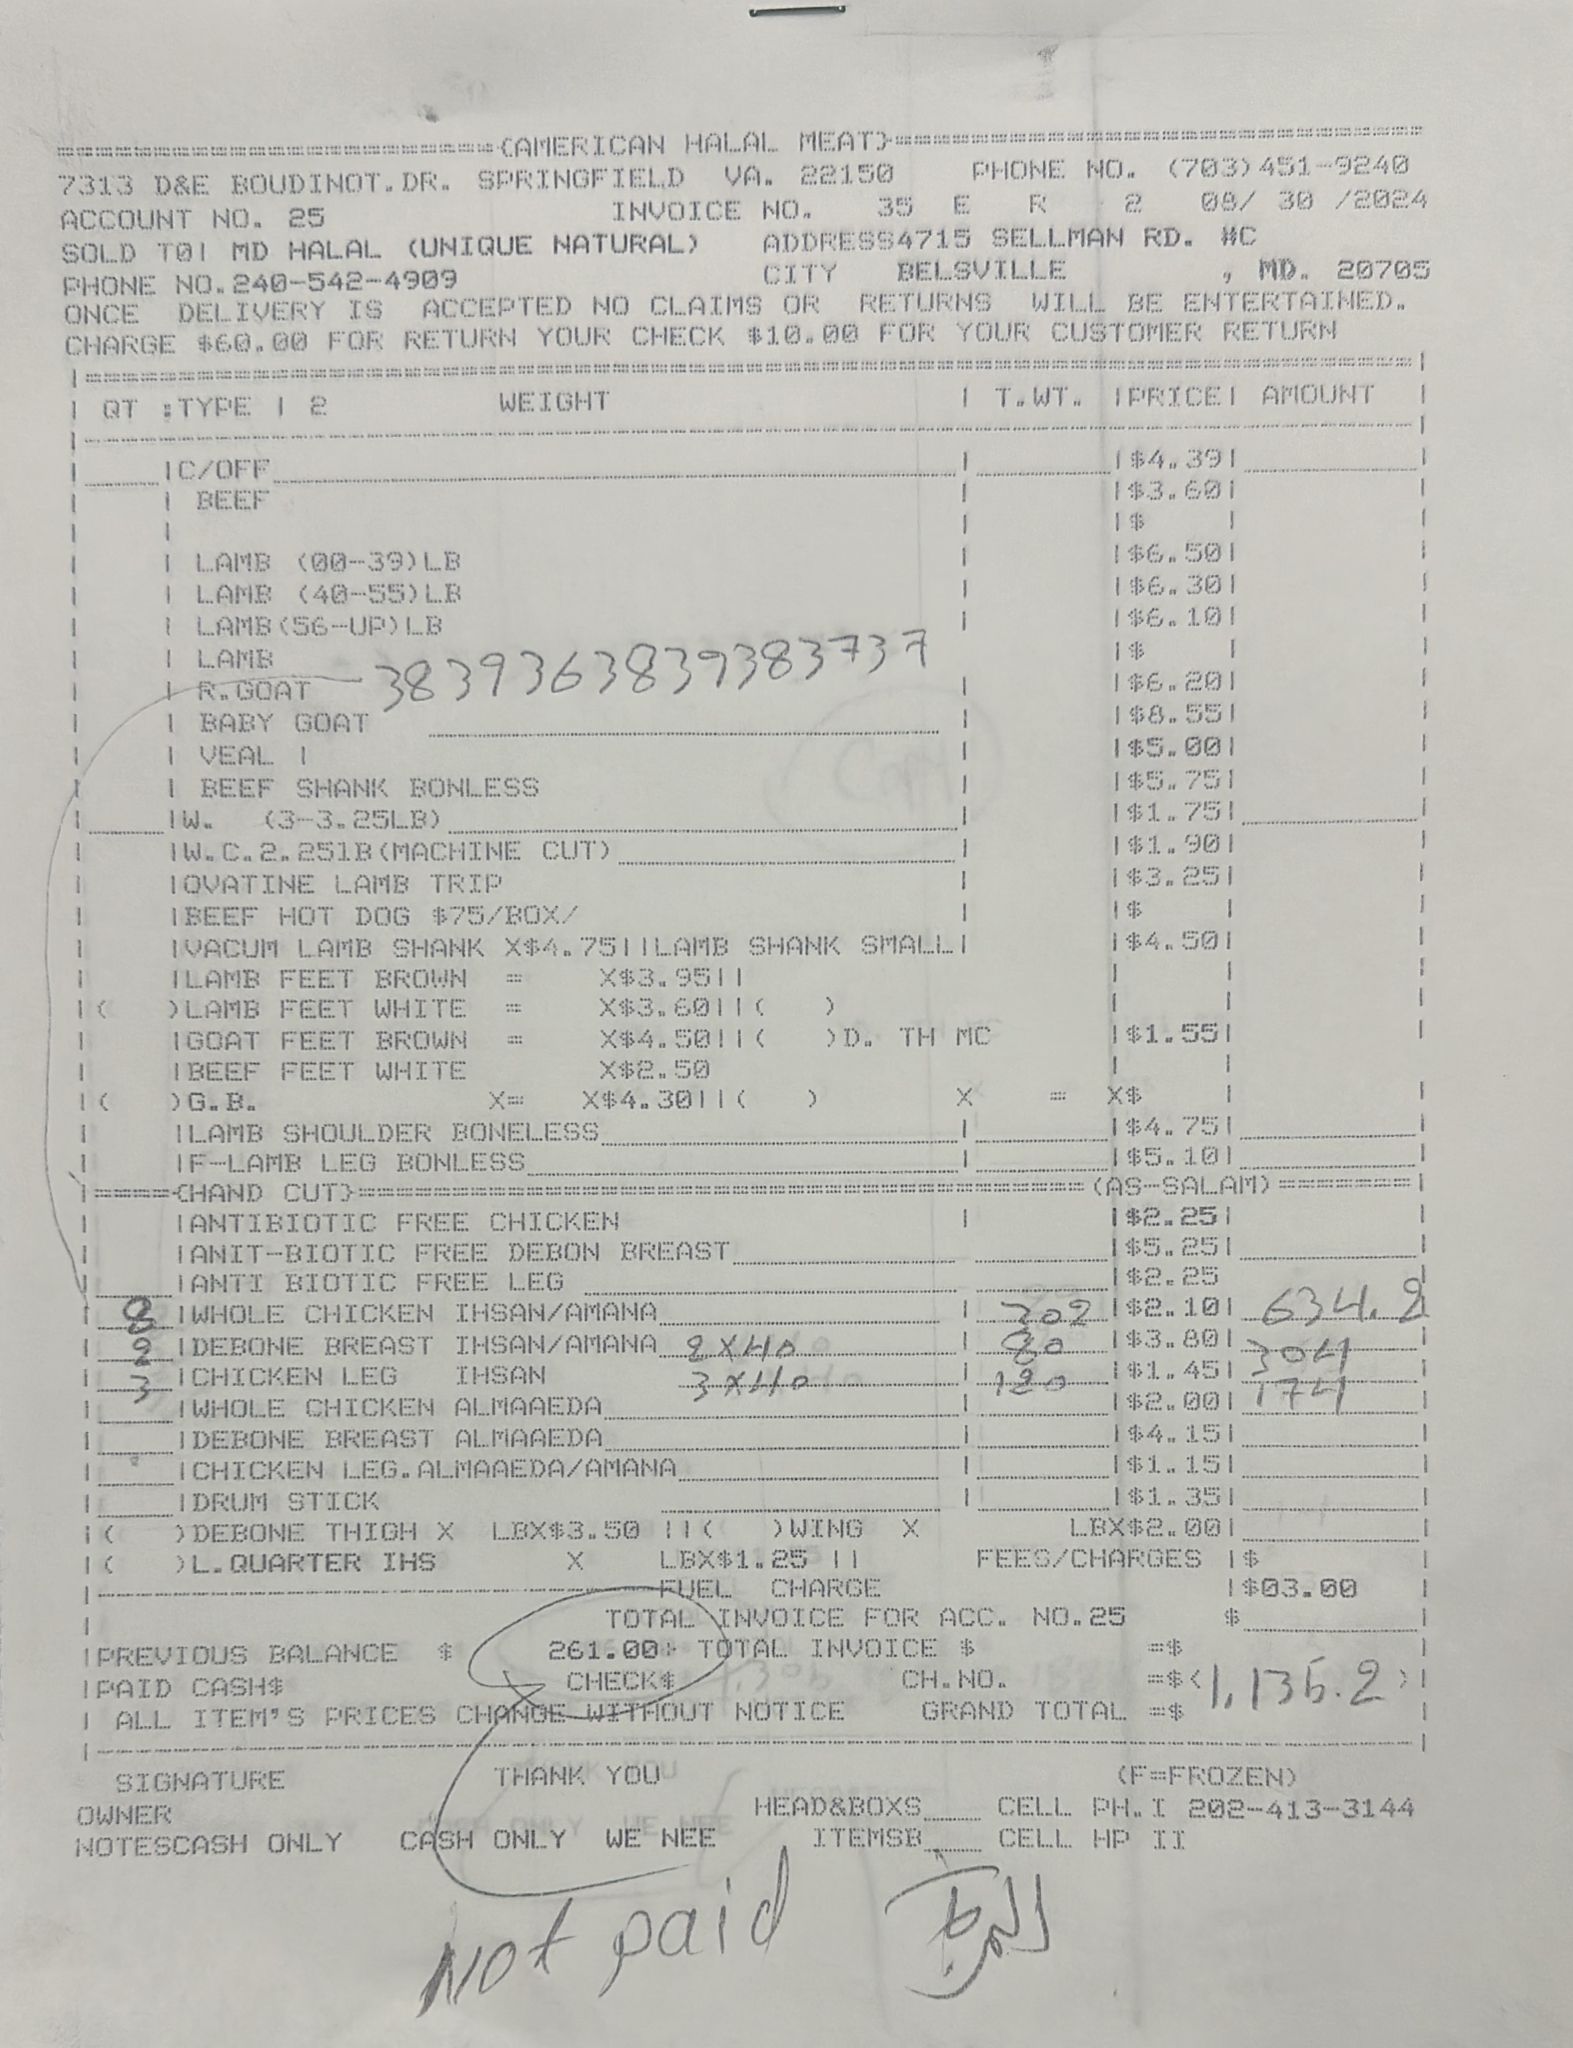 {AMERICAN HALAL MEAT}
7313 D&E BOUDINOT.DR. SPRINGFIELD VA. 22150 PHONE NO. (703)451-9240
ACCOUNT NO. 25 INVOICE NO. 35 E R 2 08/ 30 /2024
SOLD TO| MD HALAL (UNIQUE NATURAL) ADDRESS4715 SELLMAN RD. #C
PHONE NO.240-542-4909 CITY BELSVILLE , MD. 20705
ONCE DELIVERY IS ACCEPTED NO CLAIMS OR RETURNS WILL BE ENTERTAINED.
CHARGE $60.00 FOR RETURN YOUR CHECK $10.00 FOR YOUR CUSTOMER RETURN
| QT :TYPE | 2 WEIGHT | T.WT. |PRICE| AMOUNT |
|C/OFF | |$4.39|
| BEEF |$3.60|
|$ |
LAMB (00-39)LB |$6.50|
| LAMB (40-55)LB |$6.30|
| LAMB(56-UP)LB |$6.10|
| LAMB |$ |
| R.GOAT 38 39 36 38 39 38 37 37 |$6.20|
| BABY GOAT |$8.55|
| VEAL | |$5.00|
| BEEF SHANK BONLESS |$5.75|
|W. (3-3.25LB) |$1.75|
|W.C.2.251B(MACHINE CUT) |$1.90|
|OVATINE LAMB TRIP |$3.25|
|BEEF HOT DOG $75/BOX/ |$ |
|VACUM LAMB SHANK X$4.75||LAMB SHANK SMALL| |$4.50|
|LAMB FEET BROWN = X$3.95||
|( )LAMB FEET WHITE = X$3.60||( )
|GOAT FEET BROWN = X$4.50||( )D. TH MC |$1.55|
|BEEF FEET WHITE X$2.50
|( )G.B. X= X$4.30||( ) X = X$ |
|LAMB SHOULDER BONELESS |$4.75|
|F-LAMB LEG BONLESS |$5.10|
{HAND CUT} (AS-SALAM)
|ANTIBIOTIC FREE CHICKEN |$2.25|
|ANIT-BIOTIC FREE DEBON BREAST |$5.25|
|ANTI BIOTIC FREE LEG |$2.25
8 |WHOLE CHICKEN IHSAN/AMANA 302 |$2.10| 634.2
2 |DEBONE BREAST IHSAN/AMANA 2X40 80 |$3.80| 304
3 |CHICKEN LEG IHSAN 3X40 120 |$1.45| 174
|WHOLE CHICKEN ALMAAEDA |$2.00|
|DEBONE BREAST ALMAAEDA |$4.15|
|CHICKEN LEG.ALMAAEDA/AMANA |$1.15|
|DRUM STICK |$1.35|
|( )DEBONE THIGH X LBX$3.50 ||( )WING X LBX$2.00|
|( )L.QUARTER IHS X LBX$1.25 || FEES/CHARGES |$
FUEL CHARGE |$03.00
TOTAL INVOICE FOR ACC. NO.25 $
|PREVIOUS BALANCE $ 261.00 TOTAL INVOICE $ =$
|PAID CASH$ CHECK$ CH.NO. =$<1,135.2>|
| ALL ITEM'S PRICES CHANGE WITHOUT NOTICE GRAND TOTAL =$
SIGNATURE THANK YOU (F=FROZEN)
OWNER HEAD&BOXS CELL PH.I 202-413-3144
NOTESCASH ONLY CASH ONLY WE NEE ITEMSB CELL HP II
Not paid